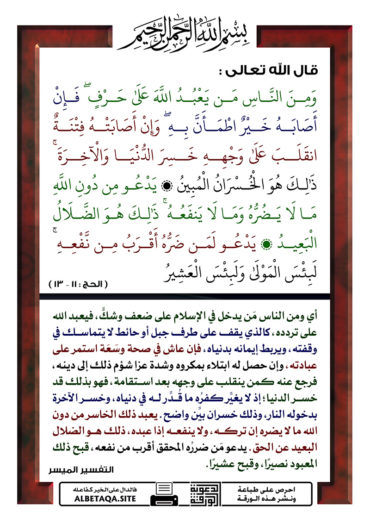 بسم الله الرحمن الرحيم
قال الله تعالى :
وَمِنَ النَّاسِ مَن يَعْبُدُ اللَّهَ عَلَىٰ حَرْفٍ ۖ فَإِنْ
أَصَابَهُ خَيْرٌ اطْمَأَنَّ بِهِ ۖ وَإِنْ أَصَابَتْهُ فِتْنَةٌ
انقَلَبَ عَلَىٰ وَجْهِهِ خَسِرَ الدُّنْيَا وَالْآخِرَةَ ۚ
ذَٰلِكَ هُوَ الْخُسْرَانُ الْمُبِينُ ۞ يَدْعُو مِن دُونِ اللَّهِ
مَا لَا يَضُرُّهُ وَمَا لَا يَنفَعُهُ ۚ ذَٰلِكَ هُوَ الضَّلَالُ
الْبَعِيدُ ۞ يَدْعُو لَمَن ضَرُّهُ أَقْرَبُ مِن نَّفْعِهِ ۚ
لَبِئْسَ الْمَوْلَىٰ وَلَبِئْسَ الْعَشِيرُ
( الحج : ١١ - ١٣ )
أي ومن الناس مَن يدخل في الإسلام على ضعف وشكٍّ، فيعبد الله
على تردده، كالذي يقف على طرف جبل أو حائط لا يتماسك في
وقفته، ويربط إيمانه بدنياه، فإن عاش في صحة وسَعَة استمر على
عبادته، وإن حصل له ابتلاء بمكروه وشدة عزا شؤم ذلك إلى دينه،
فرجع عنه كمن ينقلب على وجهه بعد استقامة، فهو بذلك قد
خسر الدنيا؛ إذ لا يغيِّر كفرُه ما قُدِّر له في دنياه، وخسر الآخرة
بدخوله النار، وذلك خسران بيِّن واضح. يعبد ذلك الخاسر من دون
الله ما لا يضره إن تركه، ولا ينفعه إذا عبده، ذلك هو الضلال
البعيد عن الحق. يدعو مَن ضررُه المحقق أقرب من نفعه، قبح ذلك
المعبود نصيرًا، وقبح عشيرًا.
التفسير الميسر
احرص على طباعة
ونشر هذه الورقة
الدعوية
فالدال على الخير كفاعله
ALBETAQA.SITE